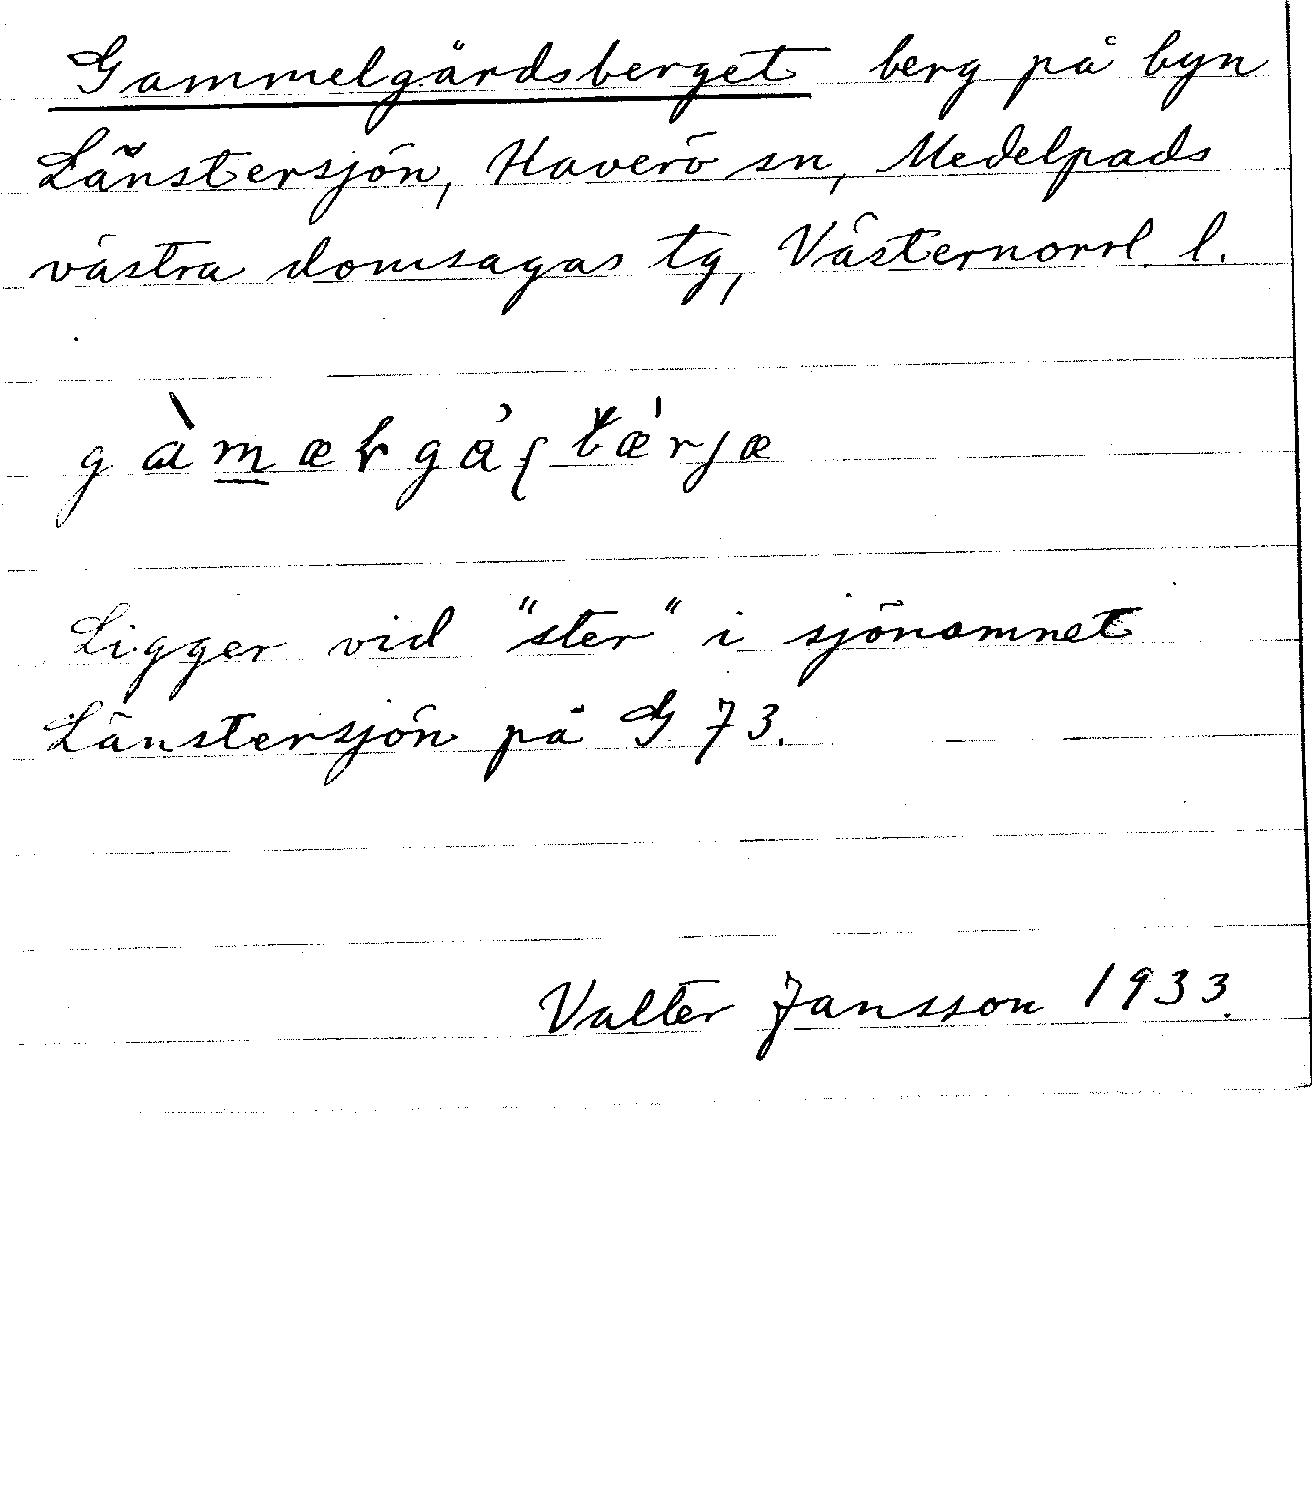 Gammelgårdsberget berg på byn
Länstersjön, Haverö sn, Medelpads
västra domsagas tg, Västernorrl. l.
Ligger vid "ster" i sjönamnet
Länstersjön på G 73.
Valter Jansson 1933.